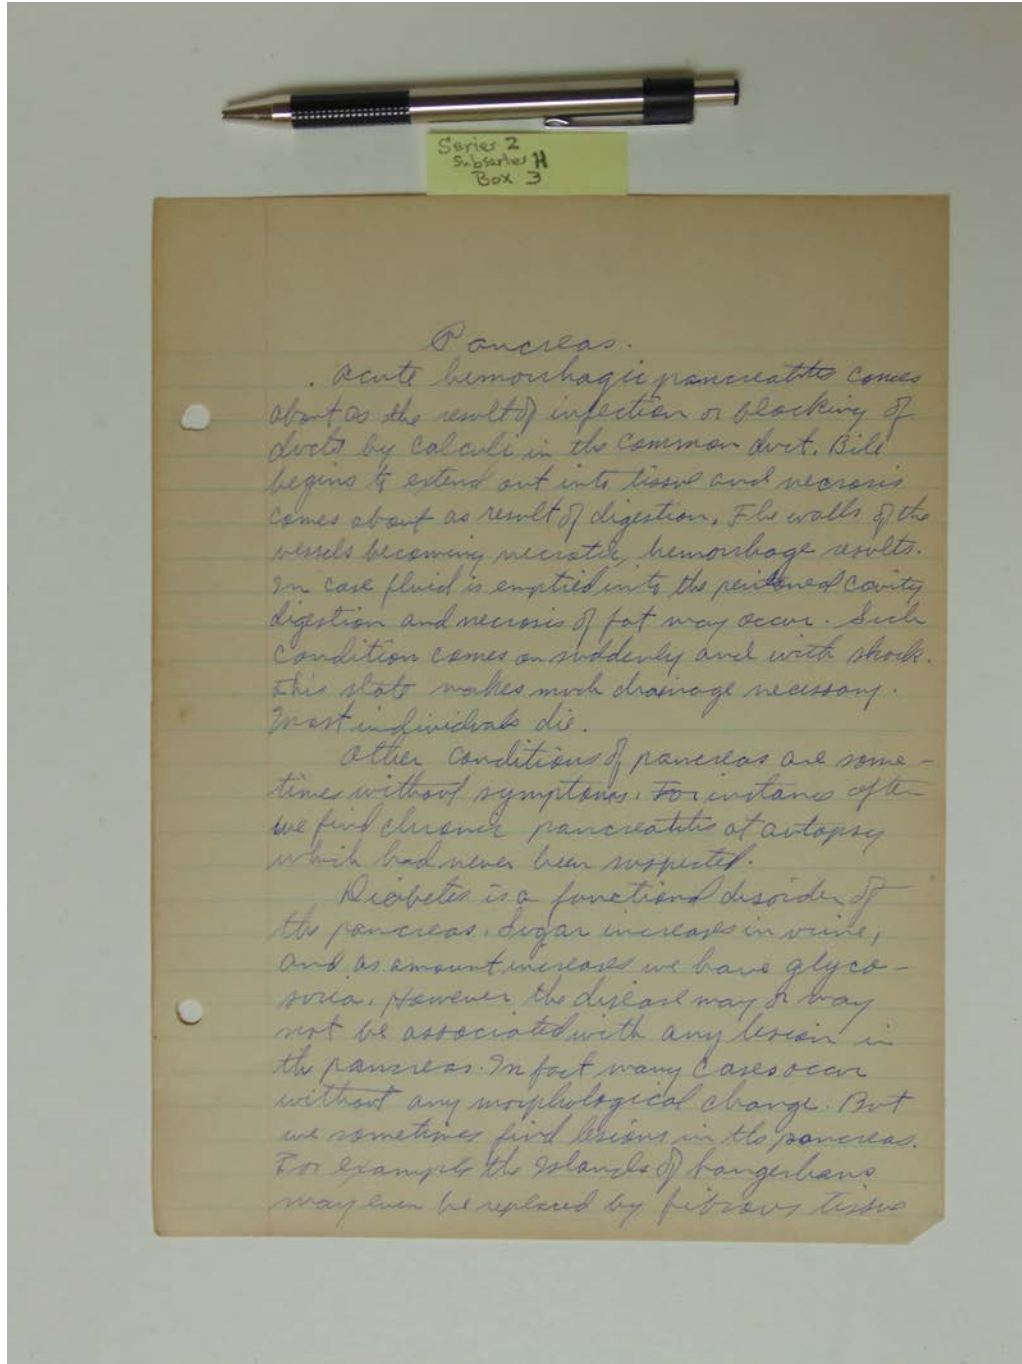 Series 2
Subseries H
Box 3
Pancreas.
Acute hemorrhagic pancreatitis comes
about as the result of infection or blocking of
ducts by calculi in the common duct. Bile
begins to extend out into tissue and necrosis
comes about as result of digestion. The walls of the
vessels becoming necrotic, hemorrhage results.
In case fluid is emptied into the peritoneal cavity
digestion and necrosis of fat may occur. Such
condition comes on suddenly and with shock.
This state makes much drainage necessary.
Most individuals die.
Other conditions of pancreas are some-
times without symptoms. For instance often
we find chronic pancreatitis at autopsy
which had never been suspected.
Diabetes is a functional disorder of
the pancreas. Sugar increases in urine,
and as amount increases we have glyco-
suria. However the disease may or may
not be associated with any lesion in
the pancreas. In fact many cases occur
without any morphological change. But
we sometimes find lesions in the pancreas.
For example the Islands of Langerhans
may even be replaced by fibrous tissue